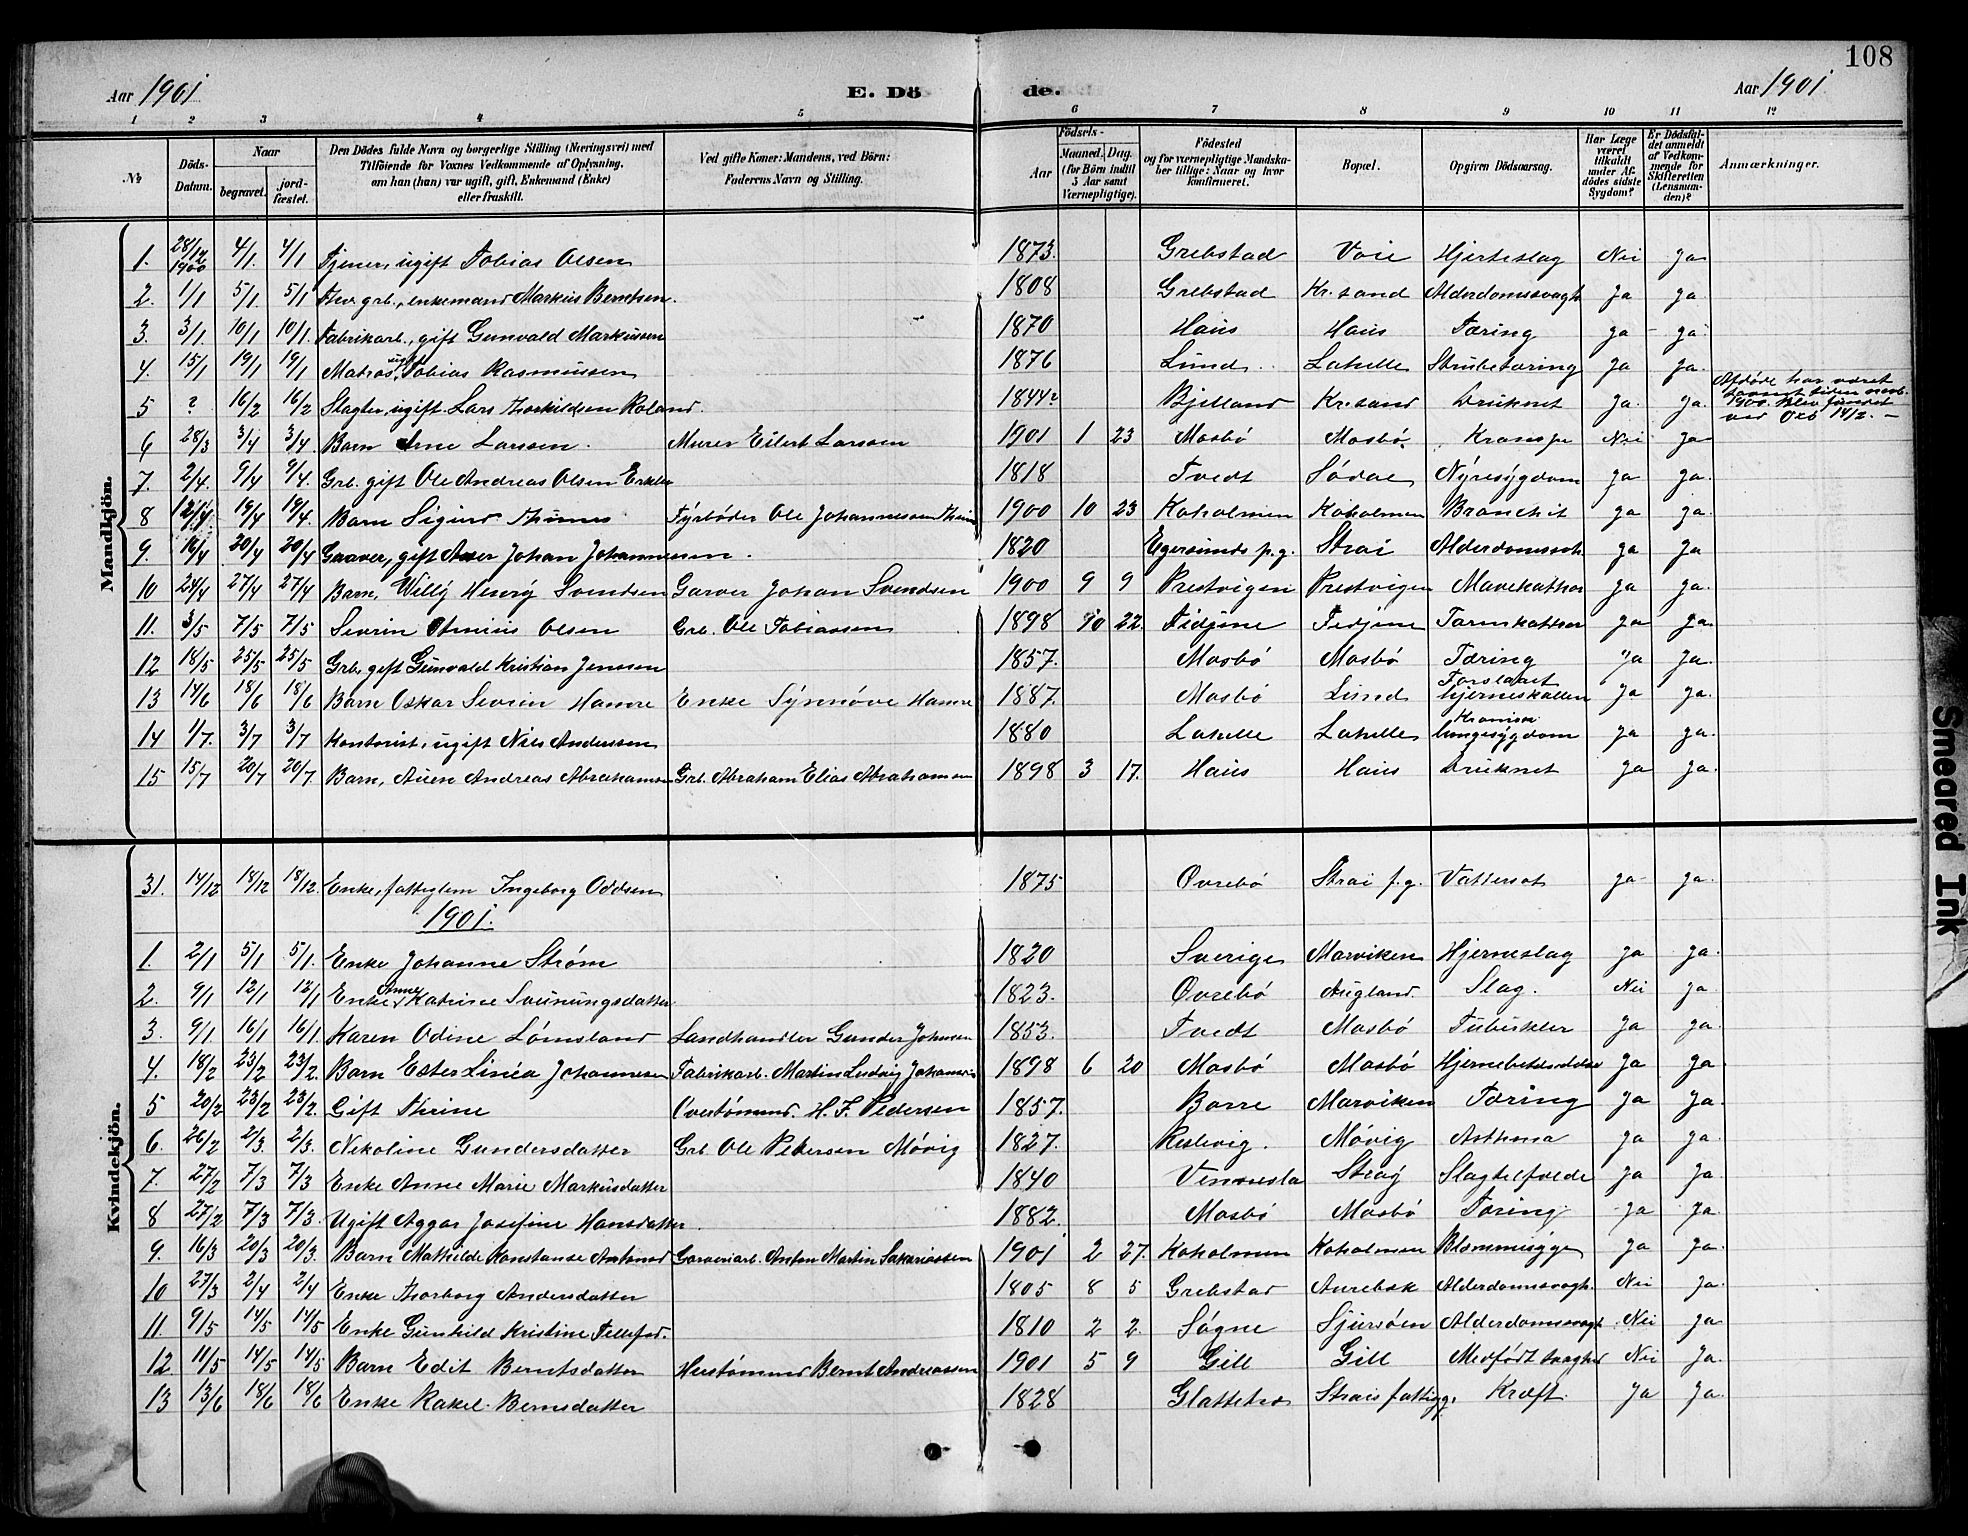 108
Aar 1901 E. Dö de. Aar 1901
1 2 3 4 5 6 7 8 9 10 11 12
№ Döds-Datum. Naar begravet. jord-fæstet. Den Dödes fulde Navn og borgerlige Stilling (Næringsvei) med Tilföiende for Voxnes Vedkommende af Oplysning, om han (hun) var ugift, gift, Enkemand (Enke) eller fraskilt. Ved gifte Koner: Mandens, ved Börn: Faderens Navn og Stilling. Födsels- Aar Maaned. Dag. (for Börn indtil 5 Aar samt Værnepligtige). Födested og for værnepligtige Mandskaber tillige: Naar og hvor konfirmeret. Bopæl. Opgiven Dödsaarsag. Har Læge været tilkaldt under Afdödes sidste Sygdom? Er Dödsfaldet anmeldt af Vedkommende for Skifteretten (Lensmanden)? Anmærkninger.
Mandkjön.
1. 28/12 1900 4/1. 4/1 Tjener, ugift Tobias Olsen 1873. Grebstad Voie Hjerteslag Nei Ja
2. 1/1 5/1. 5/1 grb., enkemand Markus Berntsen. 1808 Grebstad Kr.sand Alderdomssvagh Ja Ja.
3. 3/1. 10/1 10/1. Fabrikarb., gift Gunvald Markussen 1870 Haus Haus Tæring Ja Ja
4. 15/1 19/1 19/1 Matros, ugift Tobias Rasmussen 1876 Lund Lahelle Strubetæring Ja Ja.
5 ? 16/2 16/2 Slagter, ugift Lars Thorkildsen Roland. 1844? Bjelland Kr.sand Druknet Ja. Ja. Afdöde har været 1900. Blev fundet ved 14/2. -
6 28/3 3/4 3/4 Barn Arne Larsen. Murer Eilert Larsen 1901 1 23 Mosbö Mosbö. Krampe Nei Ja
7. 2/4. 9/4 9/4. Grb. gift Ole Andreas Olsen 1818 Tvedt Södal Nyresygdom Ja Ja.
8 12/4. 19/4 19/4. Barn Sigurd Fyrböder Ole Johannessen 1900 10 23 Koholmen Koholmen Bronchit Ja Ja.
9. 16/4 20/4 20/4 Garver, gift Johan Johannessen. 1820 Egersunds p.g. Strai Alderdomssv. Ja Ja
10 24/4 27/4 27/4 Barn, Willy Henry Svendsen Garver Johan Svendsen 1900 9 9 Prestvigen Prestvigen Mavekathar Ja Ja.
11. 3/5 7/5 7/5 Sevrin Olsen Grb. Ole Tobiassen 1898 10 22. Fidjene Fidjene Tarmkathar Ja Ja.
12 18/5 25/5 25/5 Grb. gift Gunvald Kristian Jenssen 1857. Mosbö Mosbö Tæring Ja Ja.
13 14/6 18/6 18/6 Barn Oskar Sevrin Hamre Enke Synnöve Hamre 1887. Mosbö Lund Forslaaet hjerneskallen Ja Ja.
14 1/7. 3/7 3/7 Kontorist, ugift Nils Anderssen 1880 Lahelle Lahelle Kronisk lungesygdom Ja Ja.
15 15/7 20/7 20/7 Barn, Andreas Abrahamsen Grb. Abraham Elias Abrahamsen 1898 3 17. Haus Haus Druknet Ja Ja.
Kvindekjön.
31. 14/12 18/12 18/12. Enke, fattiglem Ingeborg Oddsen 1875 Övrebö Strai f.g. Vattersot Ja Ja.
1901.
1. 2/1 5/1 5/1. Enke Johanne Ström 1820 Sverige Marviken Hjerneslag Ja Ja.
2. 9/1 12/1 12/1 Enke Anne Katrine Sveinungsdatter 1823. Övrebö Augland. Slag. Nei Ja
3. 9/1. 16/1 16/1 Karen Odine Lömsland Landhandler Gunder Johnsen 1853. Tvedt Mosbö Tuberkler Ja Ja.
4. 18/2 23/2 23/2. Barn Ester Linéa Johannesen Fabrikarb. Martin Ludvig 1898 6 20 Mosbö Mosbö Hjernebetændelse Ja Ja
5 20/2 23/2 23/2. Gift Thrine H. F. Pedersen 1857. Borre Marviken Tæring Ja Ja.
6. 26/2 2/3. 2/3. Nikoline Gundersdatter Grb. Ole Pedersen Mövig 1827. Mövig Asthma Ja Ja.
7. 27/2 7/3 7/3 Enke Anne Marie Markusdatter 1840 Vennesla Strai Slagtilfælde Ja Ja.
8 27/2 7/3 7/3. Ugift Aggar Josefine Hansdatter. 1882. Mosbö Mosbö Tæring Ja Ja.
9. 16/3 20/3 20/3. Barn Mathilde Konstanse Garveriarb. Anton Martin Sakariassen 1901 2 27. Koholmen Koholmen Ja Ja.
10 27/3 2/4 2/4 Enke Thorborg Andersdatter 1805 8 5 Grebstad Aurebæk Alderdomssvagh. Nei Ja.
11. 9/5 14/5 14/5 Enke Gunhild Kristine 1810 2 2. Søgne Alderdomssvagh. Nei Ja
12 11/5 14/5 14/5 Barn Edit Berntsdatter Hustömmer Bernt Andreassen 1901 5 9 Gill Gill Medfödt svaghed Nei Ja.
13 13/6 18/6 18/6 Enke Rakel Bernsdatter 1828 Glattetre Strais fattigg. Kræft. Ja Ja.
Smeared Ink